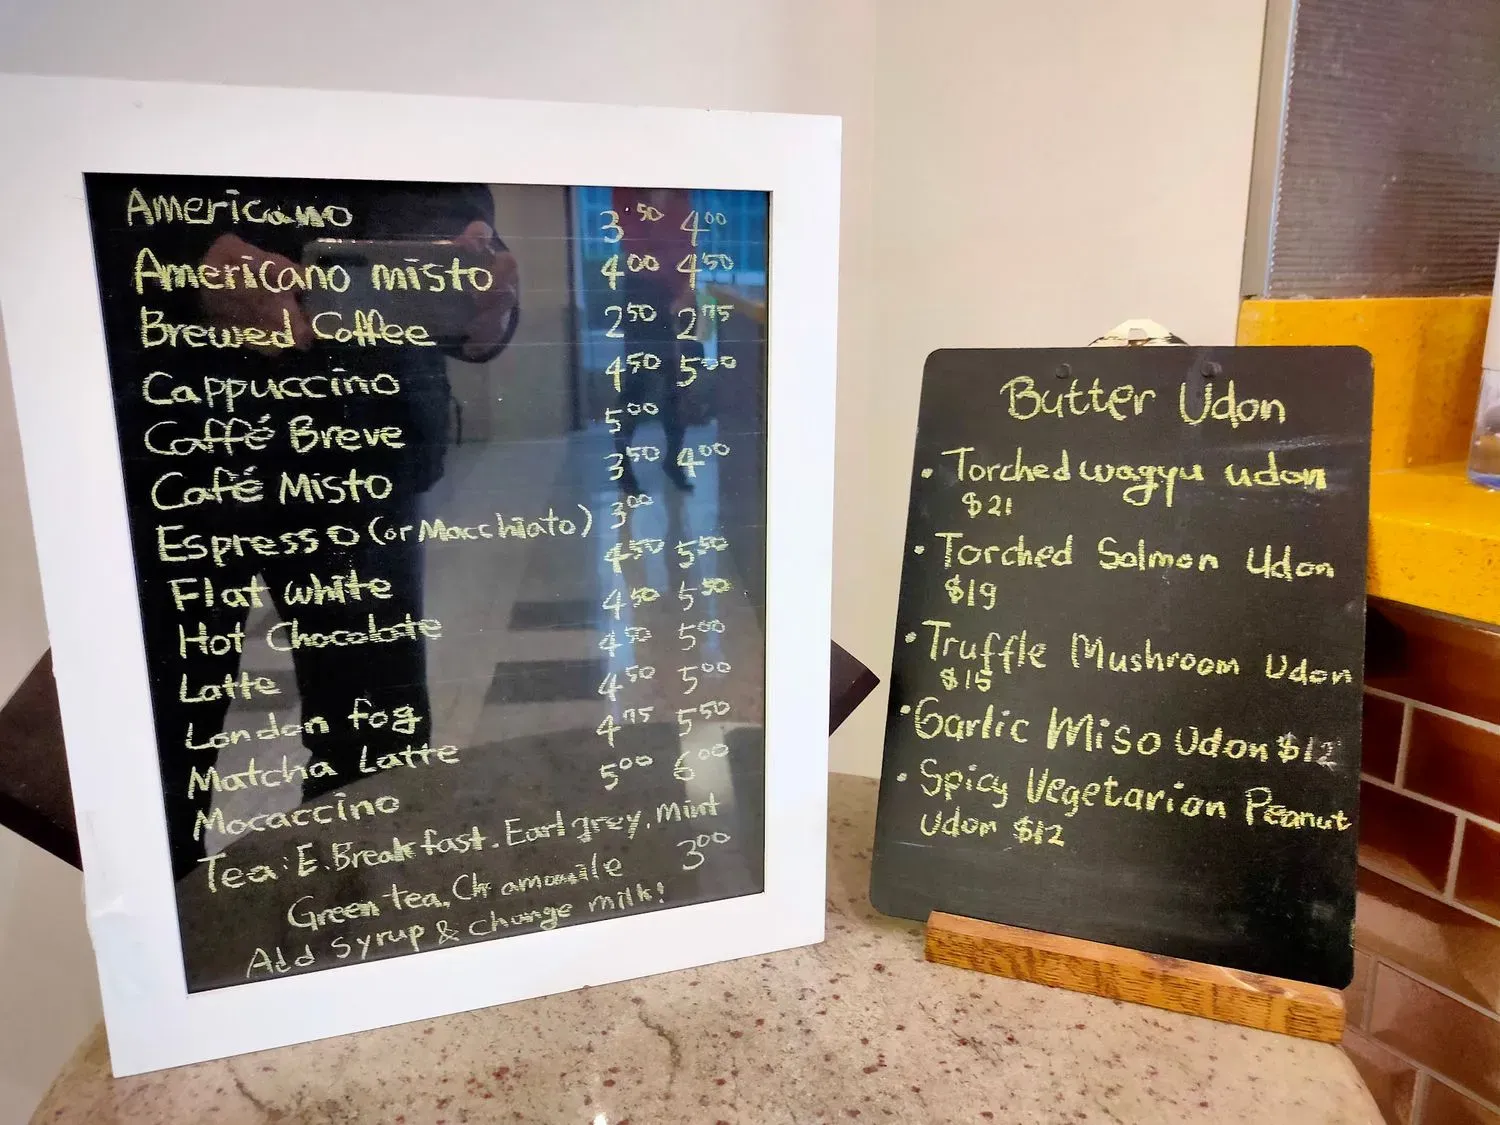 Americano 3.⁵⁰ 4⁰⁰
Americano misto 4⁰⁰ 4⁵⁰
Brewed Coffee 2⁵⁰ 2⁷⁵
Cappuccino 4⁵⁰ 5⁰⁰
Caffé Breve 5⁰⁰
Café Misto 3⁵⁰ 4⁰⁰
Espresso (or Macchiato) 3⁰⁰
Flat white 4⁵⁰ 5⁵⁰
Hot Chocolate 4⁵⁰ 5⁵⁰
Latte 4⁵⁰ 5⁰⁰
London fog 4⁵⁰ 5⁰⁰
Matcha Latte 4⁷⁵ 5⁵⁰
Mocaccino 5⁰⁰ 6⁰⁰
Tea: E. Breakfast. Earl grey. Mint
Green tea, Chamomile 3⁰⁰
Add Syrup & change milk!
Butter Udon
• Torched wagyu udon
$21
• Torched Salmon Udon
$19
• Truffle Mushroom Udon
$15
• Garlic Miso Udon $12
• Spicy Vegetarian Peanut
Udon $12